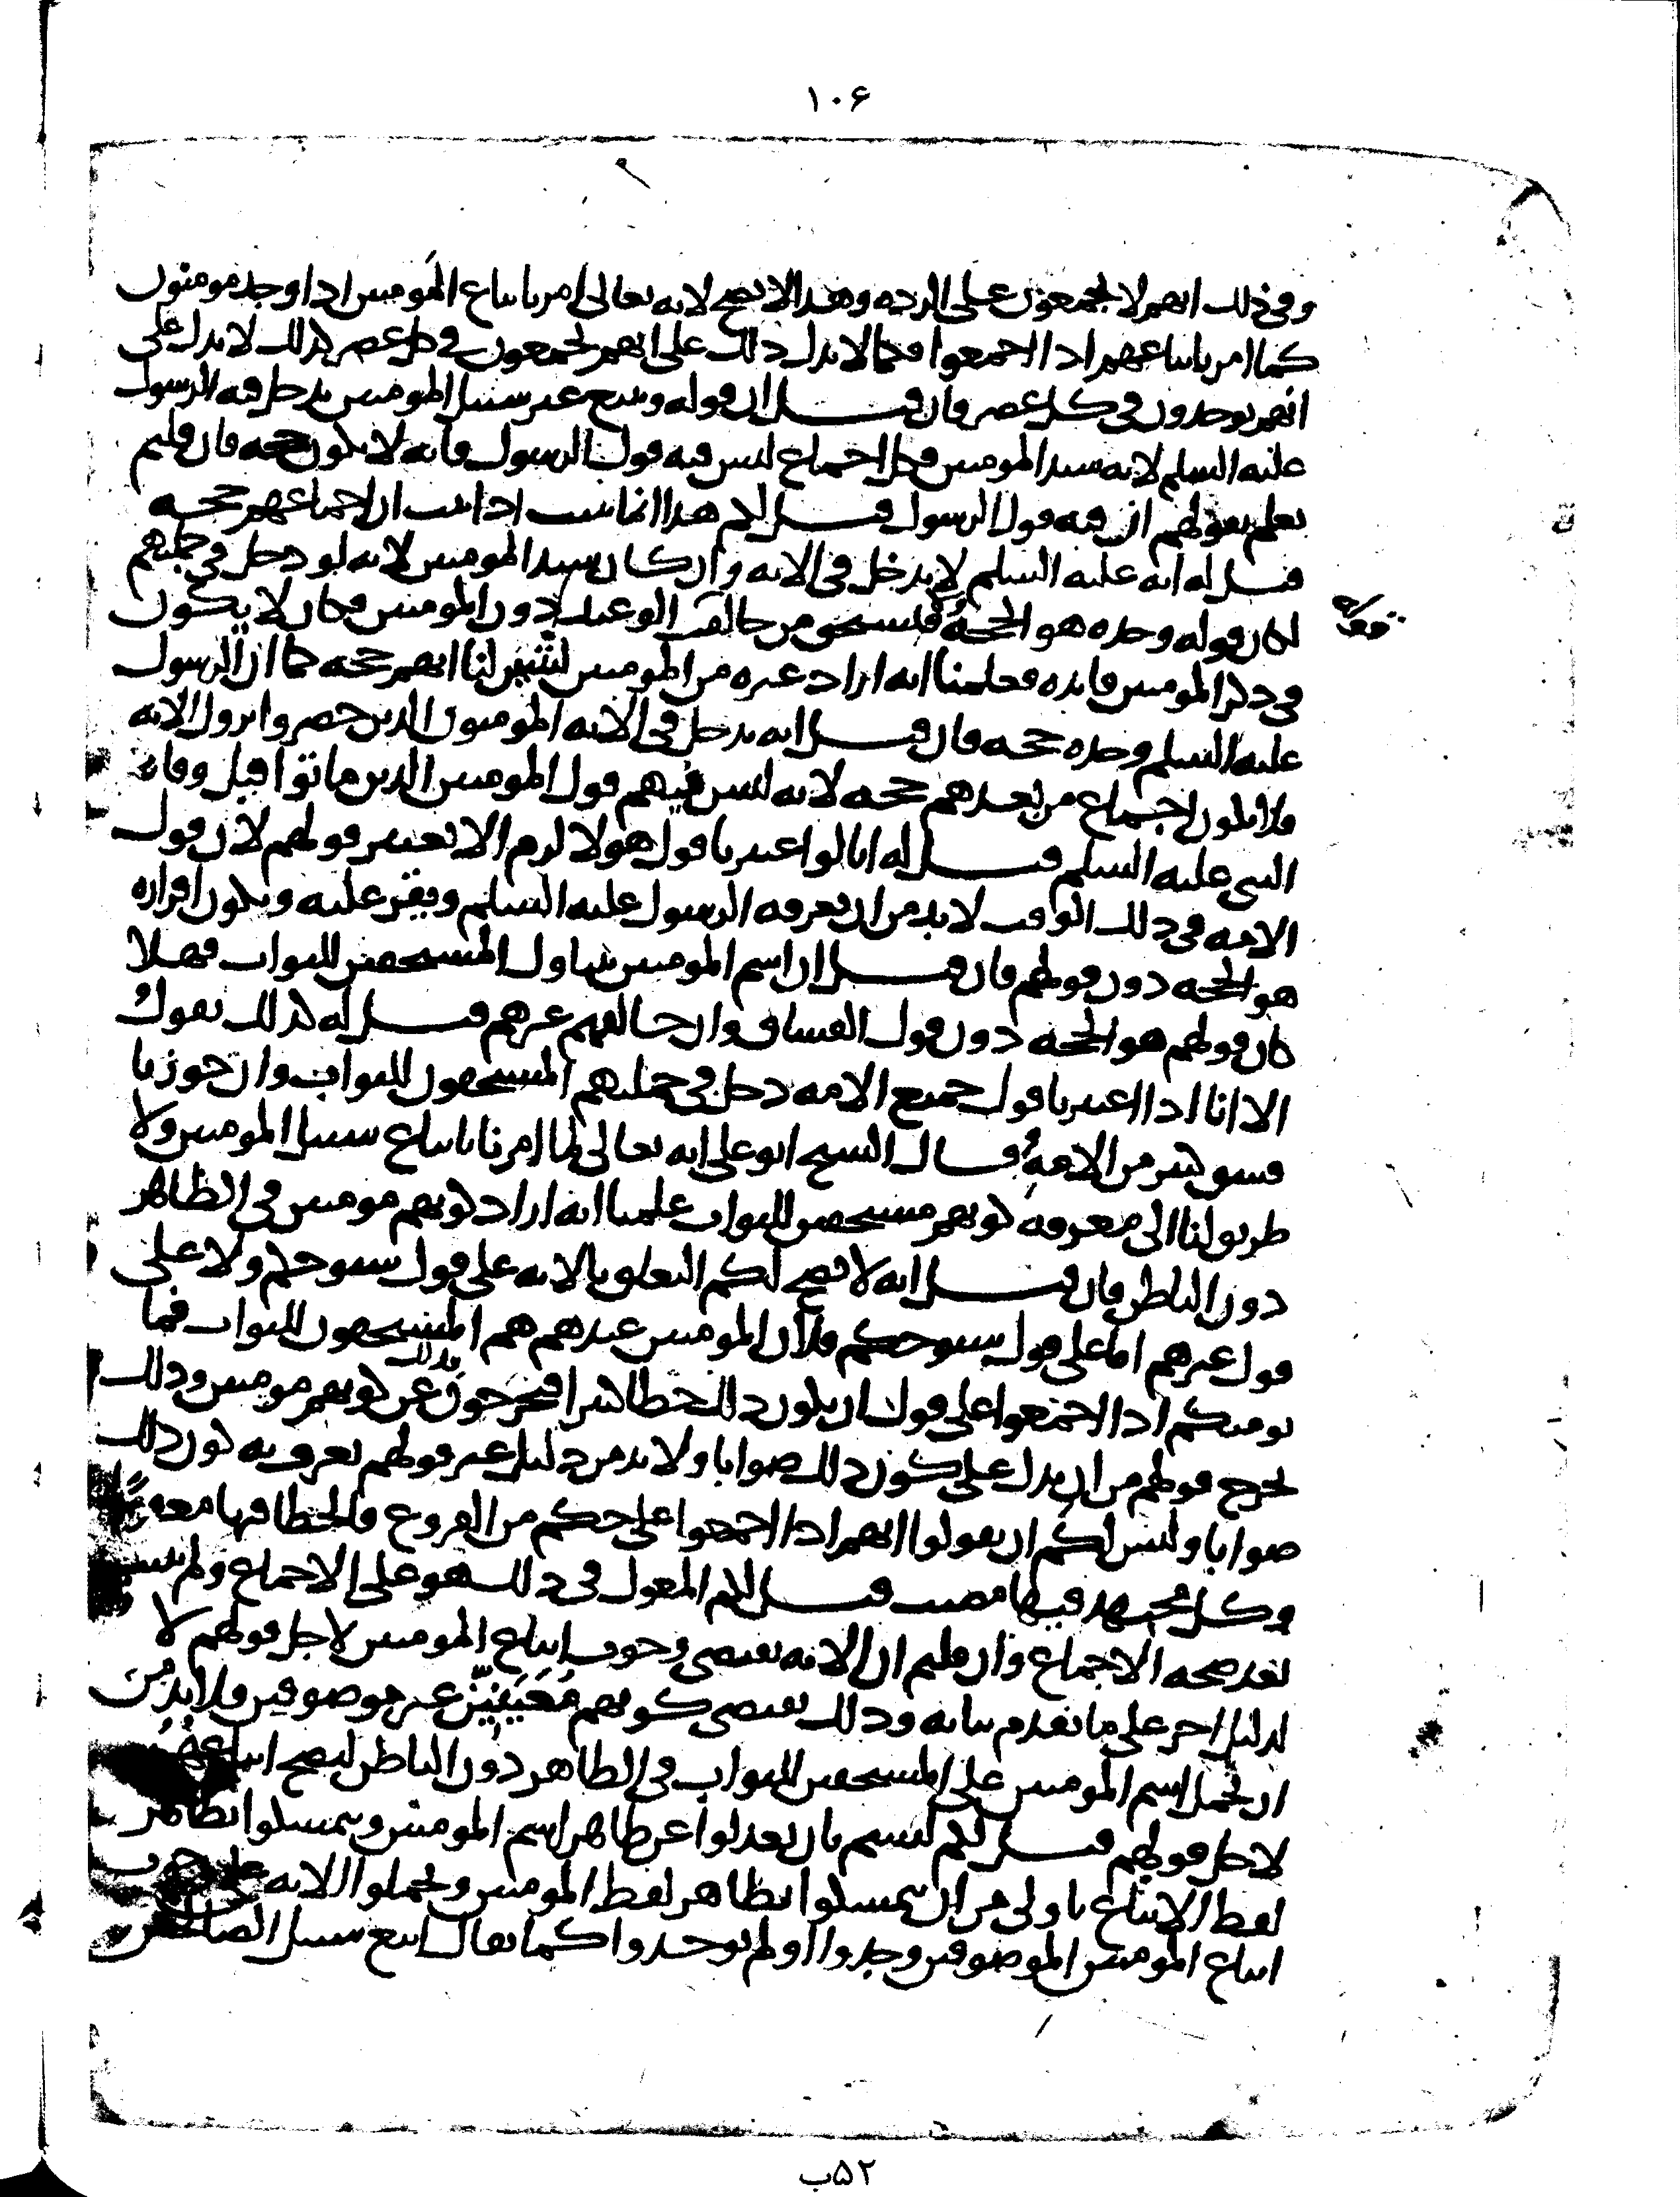 ١٠۶
وفي ذلك انهم لا يجمعون على الرده وهذا لا يصح لانه تعالى امر باتباع المومنين اذا وجد مومنون
كما امر باتباعهم اذا اجمعوا فكما لا يدل ذلك على انهم يجمعون في كل عصر كذلك لا يدل على
انهم يوجدون في كل عصر فان قيل ان قوله ويتبع غير سبيل المومنين يدخل فيه الرسول
عليه السلم لانه سيد المومنين فكل اجماع ليس فيه قول الرسول فانه لا يكون حجه فان قلتم
نعلم بقولهم ان فيه قول الرسول قيل لكم هذا انما يثبت اذا ثبت ان اجماعهم حجه
قيل له انه عليه السلم لا يدخل في الايه وان كان سيد المومنين لانه لو دخل في جملتهم
لكان قوله وحده هو الحجه فيستحق من خالفه الوعيد دون المومنين فكان لا يكون
في ذكر المومنين فايده فعلمنا انه اراد غيره من المومنين ليبين لنا انهم حجه كما ان الرسول
عليه السلم وحده حجه فان قيل انه يدخل في الايه المومنون الذين حضروا نزول الايه
فلا يكون اجماع من بعدهم حجه لانه ليس فيهم قول المومنين الذين ماتوا قبل وفاه
النبي عليه السلم قيل له انا لو اعتبرنا قول هولا لزم الا نعتبر قولهم لان قول
الامه في ذلك الوقت لا بد من ان يعرفه الرسول عليه السلم ويقر عليه ويكون اقراره
هو الحجه دون قولهم فان قيل ان اسم المومنين يتناول المستحقين للثواب فهلا
كان قولهم هو الحجه دون قول الفساق وان خالفهم غيرهم قيل له كذلك نقول
الا انا اذا اعتبرنا قول جميع الامه دخل في جملتهم المستحقون للثواب وان جوزنا
فسق كثير من الامه وقال الشيخ ابو علي انه تعالى لما امرنا باتباع سبيل المومنين ولا
طريق لنا الى معرفه كونهم مستحقين للثواب علمنا انه اراد كونهم مومنين في الظاهر
دون الباطن فان قيل انه لا يصح لكم التعلق بالايه على قول شيوخكم ولا على
قول غيرهم اما على قول شيوخكم فلان المومنين عندهم هم المستحقون للثواب فما
يومنكم اذا اجتمعوا على قول ان يكون ذلك خطا كثيرا فيخرجون بذلك عن كونهم مومنين وذلك
يخرج قولهم من ان يدل على كون ذلك صوابا ولا بد من دليل غير قولهم يعرف به كون ذلك
صوابا وليس لكم ان يقولوا انهم اذا اجمعوا على حكم من الفروع فالخطا فيها معفو
وكل مجتهد فيها مصيب قيل لكم المعول في ذلك هو على الاجماع ولم
بعد صحه الاجماع وان قلتم ان الايه تقتضي وجوب اتباع المومنين لاجل قولهم لا
لدليل اخر على ما تقدم بيانه وذلك يقتضي كونهم معينين غير موصوفين فلا بد من
ان يحمل اسم المومنين على المستحقين للثواب في الظاهر دون الباطن ليصح اتباعهم
لاجل قولهم قيل لكم لستم بان تعدلوا عن ظاهر اسم المومنين وتمسكوا بظاهر
لفظ الاتباع باولى من ان تمسكوا بظاهر لفظ المومنين وتحملوا الايه على وجوب
اتباع المومنين الموصوفين وجدوا او لم يوجدوا كما يقال اتبع سبيل الصالحين
۵۲ب